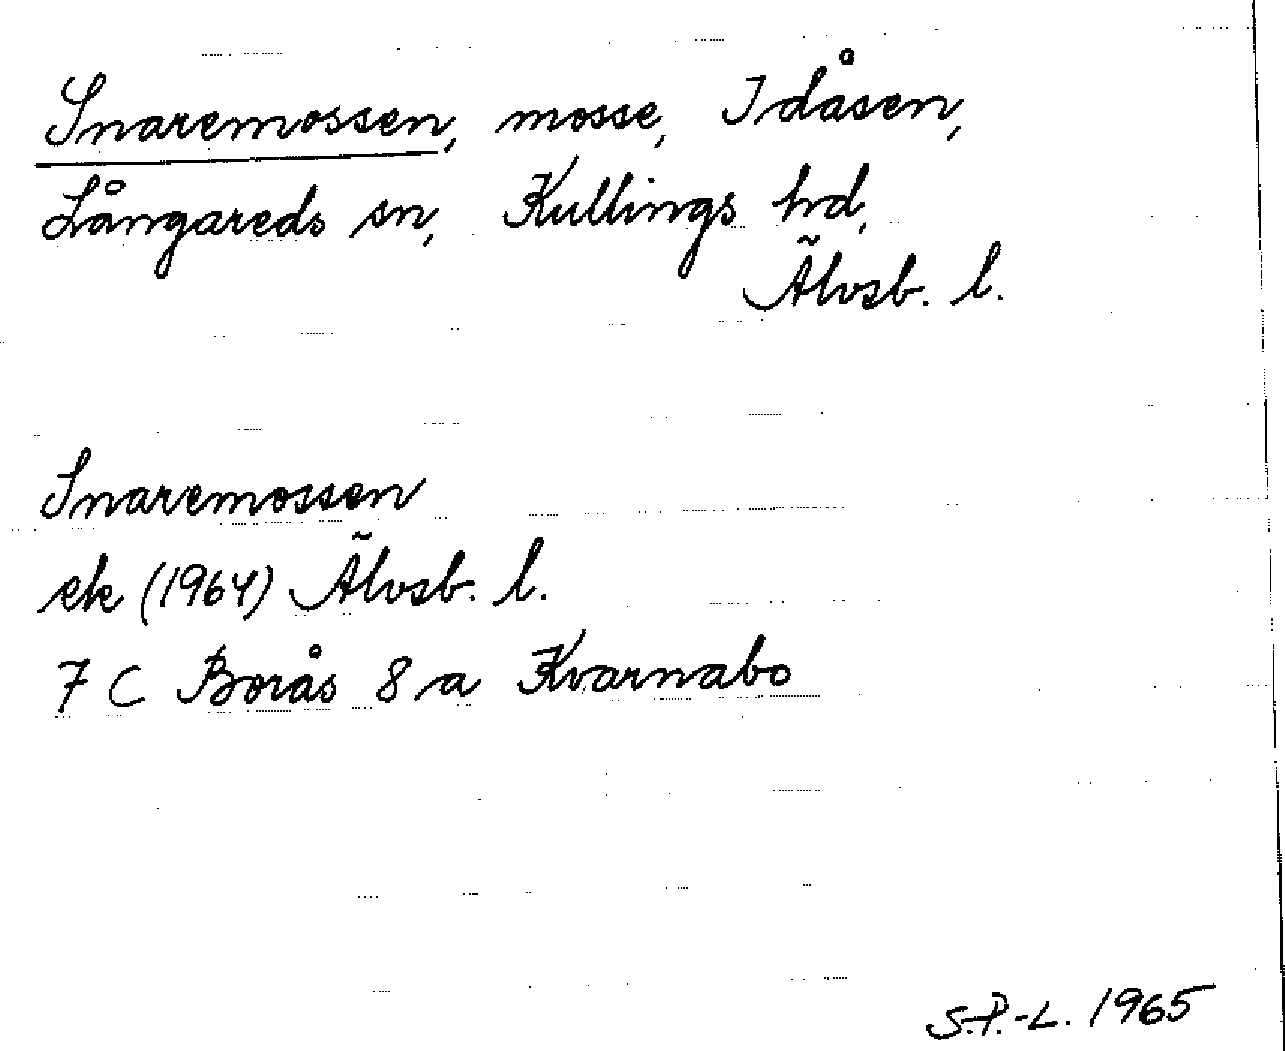 Snaremossen, mosse, Idåsen,
Långareds sn, Kullings hd,
Älvsb. l.
Snaremossen
ek (1964) Älvsb. l.
7 C Borås 8 a Kvarnabo
S.P.-L. 1965